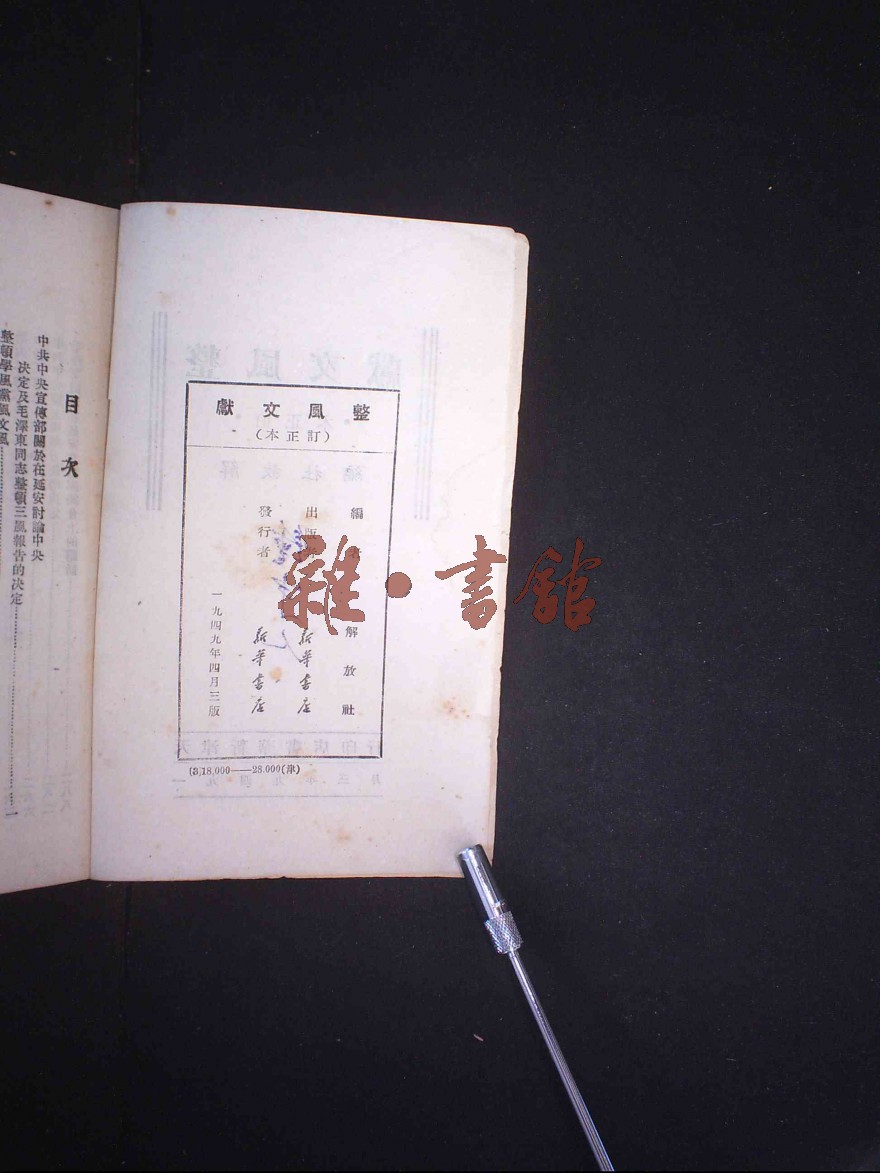 整風文獻
(訂正本)
編者 解放社
出版者 新華書店
發行者 新華書店
一九四九年四月三版
(3)18,000——28,000(津)
目次
中共中央宣傳部關於在延安討論中央
決定及毛澤東同志整頓三風報告的決定
整頓學風黨風文風
雜·書館